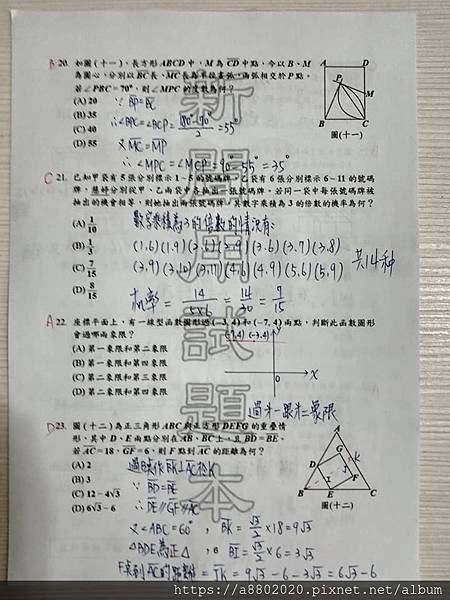 B 20. 如圖(十一),長方形ABCD中,M為CD中點,今以B、M
為圓心,分別以BC長、MC長為半徑畫弧,兩弧相交於P點。
若∠PBC=70°,則∠MPC的度數為何?
(A) 20 ∵ BP=BC
(B) 35 ∴∠BPC=∠BCP=(180°-70°)/2=55°
(C) 40
(D) 55 又MC=MP
∴∠MPC=∠MCP=90°-55°=35°
A D P M B C
圖(十一)
C 21. 已知甲袋有5張分別標示1~5的號碼牌,乙袋有6張分別標示6~11的號碼
牌,慧婷分別從甲、乙兩袋中各抽出一張號碼牌。若同一袋中每張號碼牌被
抽出的機會相等,則她抽出兩張號碼牌,其數字乘積為3的倍數的機率為何?
(A) 1/10 數字乘積為3的倍數的情況有:
(B) 1/3 (1,6)(1,9)(2,6)(2,9)(3,6)(3,7)(3,8)
(C) 7/15 (3,9)(3,10)(3,11)(4,6)(4,9)(5,6)(5,9) 共14種
(D) 8/15 機率=14/(5×6)=14/30=7/15
A 22. 座標平面上,有一線型函數圖形過(-3,4)和(-7,4)兩點,判斷此函數圖形
會過哪兩象限?
(-7,4) (-3,4)
(A) 第一象限和第二象限
(B) 第一象限和第四象限
(C) 第二象限和第三象限
(D) 第二象限和第四象限
0 x
過第一跟第二象限
D 23. 圖(十二)為正三角形ABC與正方形DEFG的重疊情
形,其中D、E兩點分別在AB、BC上,且BD=BE。
若AC=18,GF=6,則F點到AC的距離為何?
(A) 2
(B) 3 ∵ BD=BE
(C) 12-4√3 ∴ DE∥GF∥AC
(D) 6√3-6
又∠ABC=60°,BK=√3/2×18=9√3
△BDE為正△,BI=√3/2×6=3√3
F點到AC的距離=JK=9√3-6-3√3=6√3-6
A G K D J F I B E C
圖(十二)
新店用試題本
https://a8802020.pixnet.net/album